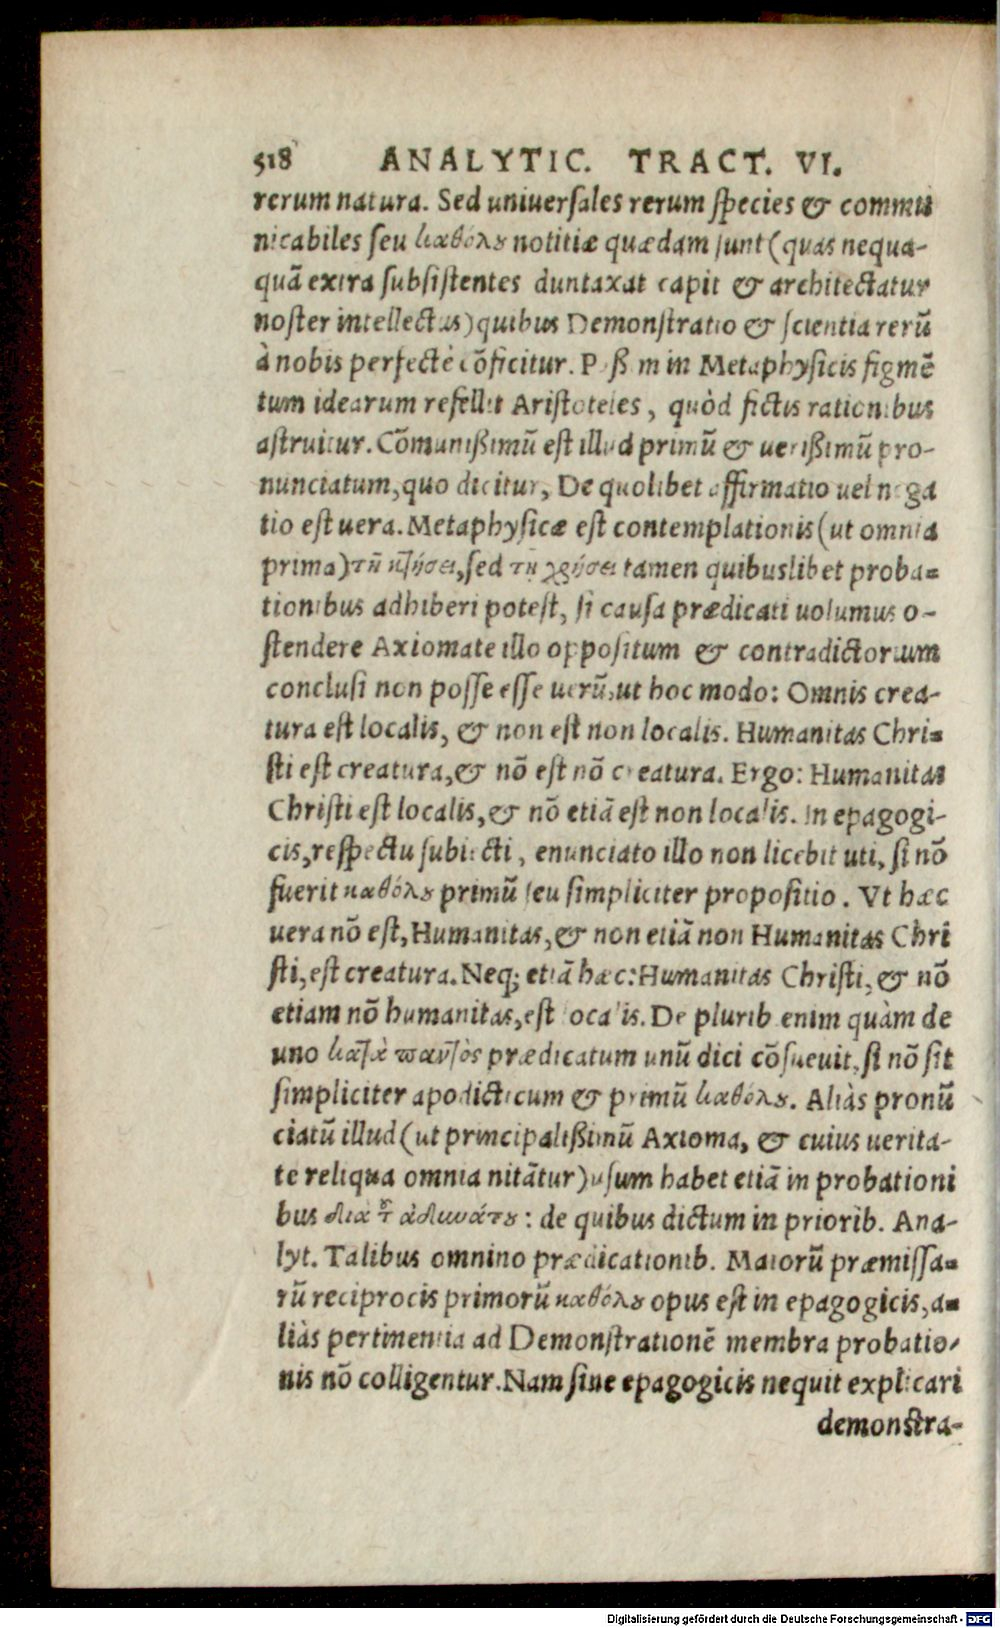 518 ANALYTIC. TRACT. VI.
rerum natura. Sed uniuersales rerum species & commu
nicabiles seu καθόλου notitiæ quædam sunt (quas nequa-
quā extra subsistentes duntaxat capit & architectatur
noster intellectus) quibus Demonstratio & scientia rerū
à nobis perfectè cōficitur. Paßim in Metaphysicis figmē
tum idearum refellit Aristoteles, quòd fictis rationibus
astruitur. Cōmunißimū est illud primū & uerißimū pro-
nunciatum, quo dicitur, De quolibet affirmatio uel nega
tio est uera. Metaphysicæ est contemplationis (ut omnia
prima) τῇ κτήσει, sed τῇ χρήσει tamen quibuslibet proba=
tionibus adhiberi potest, si causa prædicati uolumus o-
stendere Axiomate illo oppositum & contradictorium
conclusi non posse esse uerū, ut hoc modo: Omnis crea-
tura est localis, & non est non localis. Humanitas Chri=
sti est creatura, & nō est nō creatura. Ergo: Humanitas
Christi est localis, & nō etiā est non localis. In epagogi-
cis, respectu subiecti, enunciato illo non licebit uti, si nō
fuerit καθόλου primū seu simpliciter propositio. Vt hæc
uera nō est, Humanitas, & non etiā non Humanitas Chri
sti, est creatura. Neq; etiā hæc: Humanitas Christi, & nō
etiam nō humanitas, est localis. De plurib. enim quàm de
uno κατὰ παντὸς prædicatum unū dici cōsueuit, si nō sit
simpliciter apodicticum & primū καθόλου. Aliàs pronū
ciatū illud (ut principalißimū Axioma, & cuius uerita-
te reliqua omnia nitātur) usum habet etiā in probationi
bus διὰ τοῦ ἀδυνάτου: de quibus dictum in priorib. Ana-
lyt. Talibus omnino prædicationib. Maiorū præmissa=
rū reciprocis primorū καθόλου opus est in epagogicis, a=
liàs pertinentia ad Demonstrationē membra probatio-
nis nō colligentur. Nam sine epagogicis nequit explicari
demonstra-
Digitalisierung gefördert durch die Deutsche Forschungsgemeinschaft - DFG